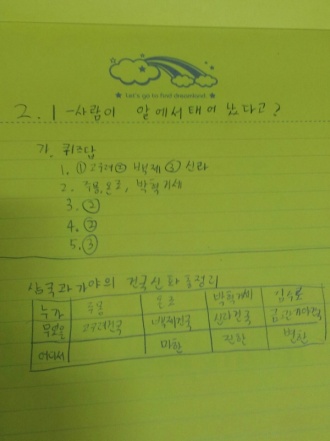 Let's go to find dreamland.
2.1-사람이 알에서 태어 났다고?
가. 퀴즈답
1. ①고구려 ② 백제 ③ 신라
2. 주몽, 온조, 박혁거세
3. ②
4.
5. ③
삼국과 가야의 건국신화 총정리
누가 주몽 온조 박혁거세 김수로
무엇을 고구려건국 백제건국 신라건국 금관가야건국
어디서 마한 진한 변한